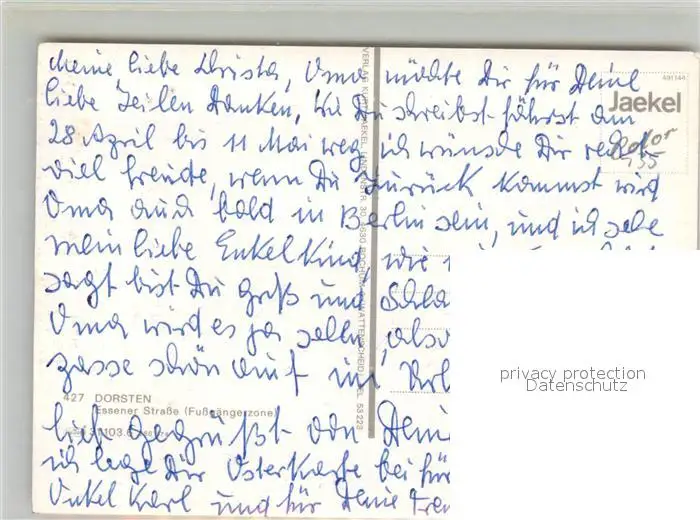 Meine liebe Christa, Oma möchte Dir für Deine
liebe Zeilen Danken, wie Du schreibst fährst am
28 April bis 11 Mai weg, ich wünsche Dir recht
viel freude, wenn Du Zurück kommst wird
Oma auch bald in Berlin sein, und ich sehe
mein liebe Enkelkind, wie
sagt bist Du groß und Schla
Oma wird es ja sehen, also
passe schön auf im
lich gegrüßt von Deine
ich lege Dir Osterkarte bei für
Onkel Karl und für Deine
491144
Jaekel
427 DORSTEN
Essener Straße (Fußgängerzone)
privacy protection
Datenschutz